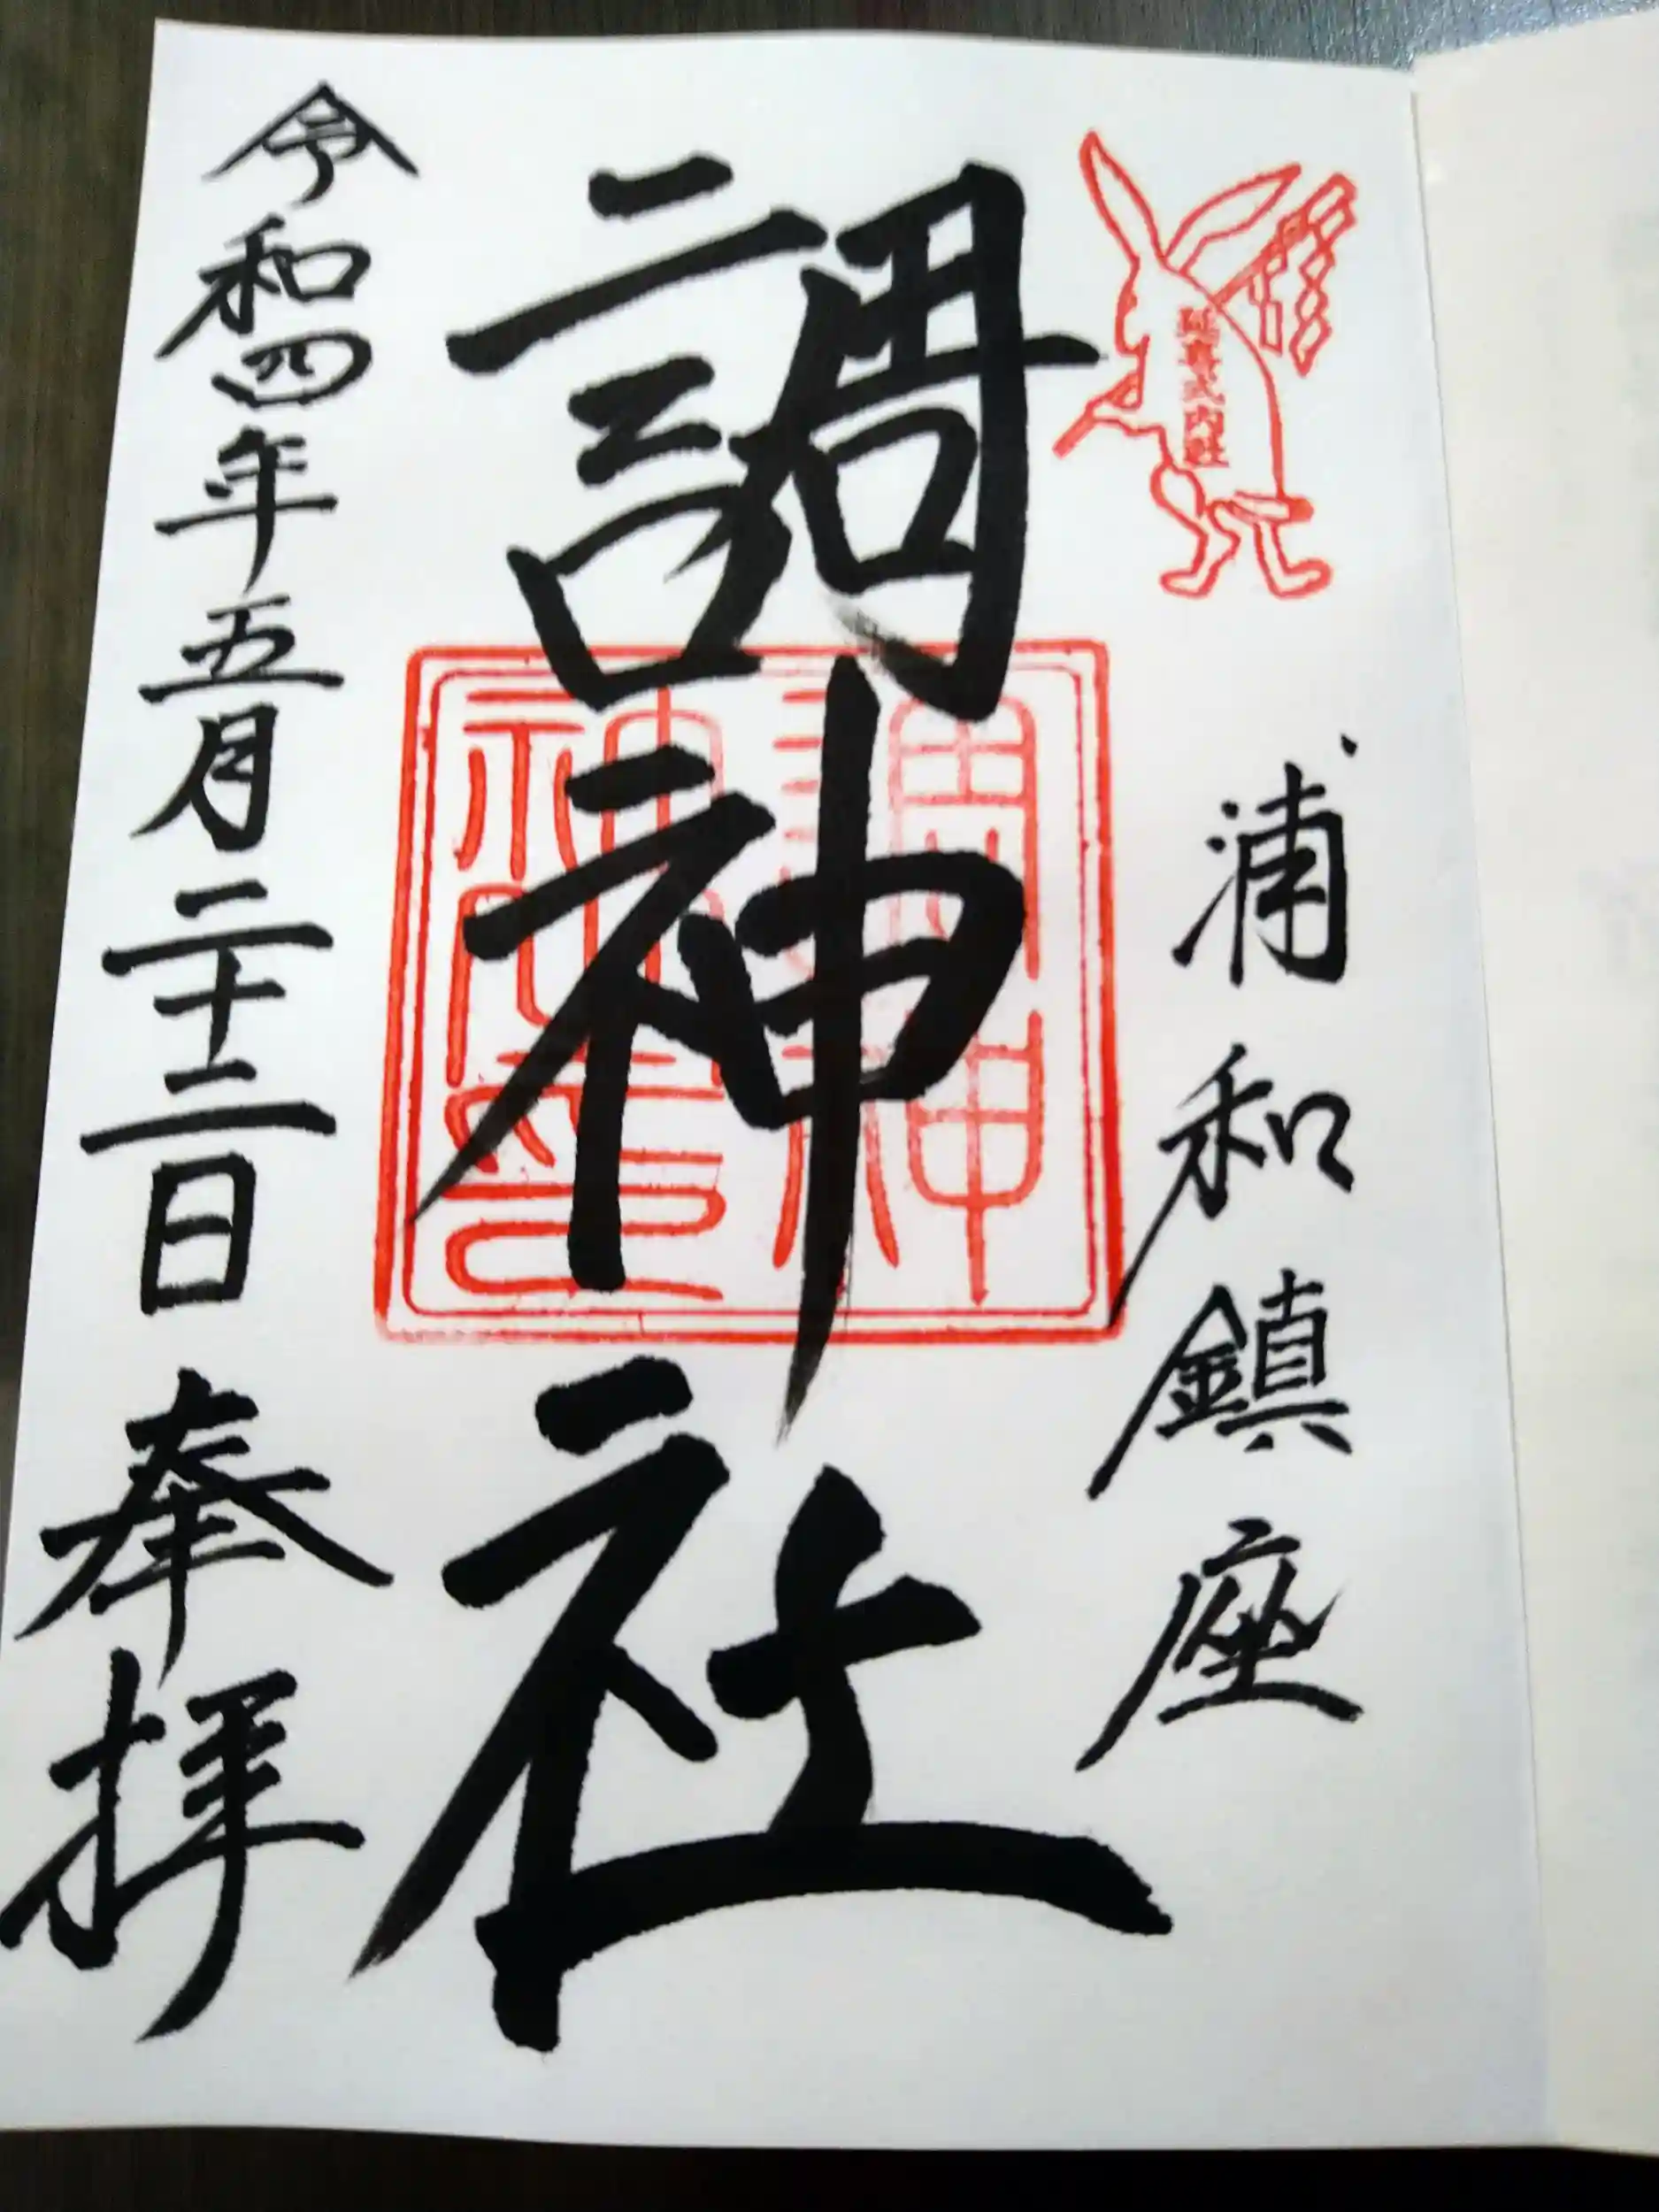 延喜式内社
浦和鎮座
調神社
調神
神社印
令和四年五月二十二日 奉拝